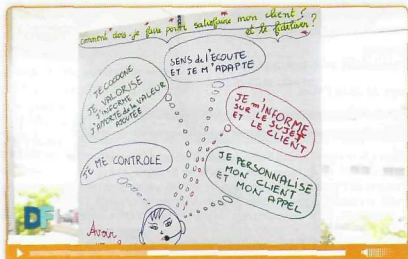 comment dois-je faire pour satisfaire mon client ?
et le fidéliser ?
JE COCOONE
JE VALORISE
J'INFORME
J'APPORTE de la VALEUR
AJOUTÉE
SENS de l'ÉCOUTE
ET JE M'ADAPTE
JE m'INFORME
SUR LE SUJET
ET LE CLIENT
JE ME CONTROLE
JE PERSONNALISE
MON CLIENT
ET MON APPEL
Avoir
DF